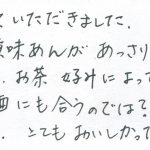 ていただきました.
味あんがあっさり
お茶 好みによって
にも合うのでは?
. とてもおいしかって